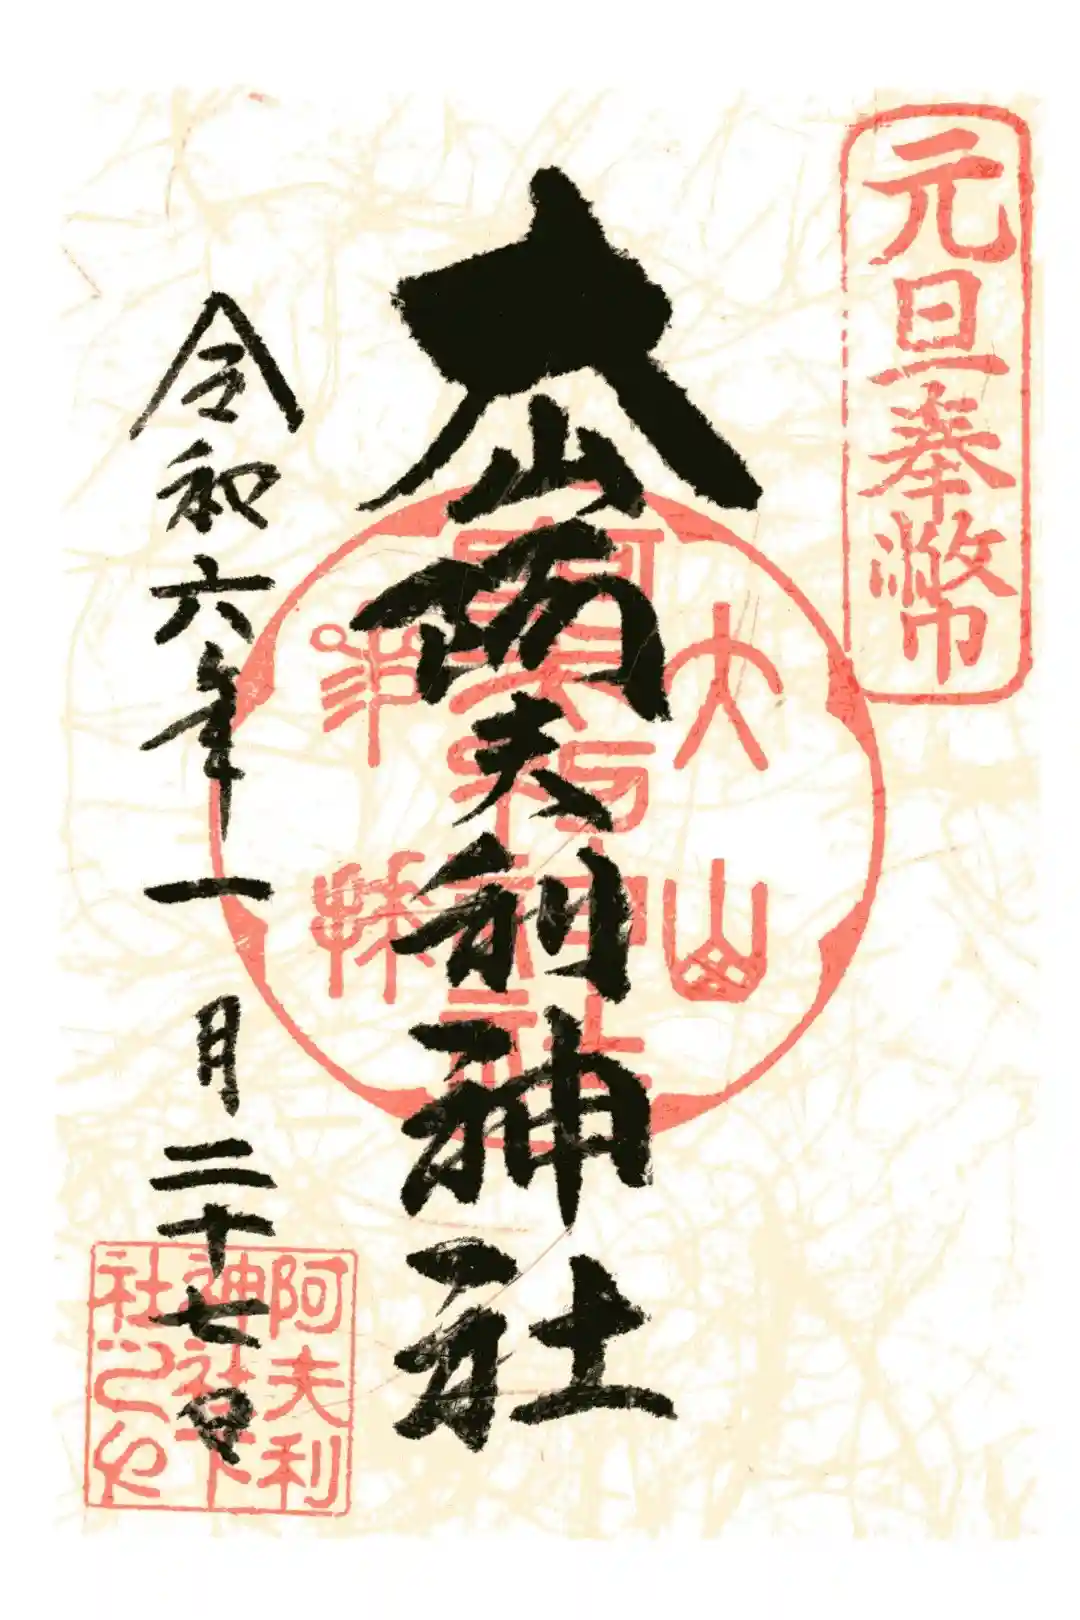 元旦奉幣
大山阿夫利神社
令和六年一月二十七日
大山
阿夫利神社
阿夫利
神社下
社之印